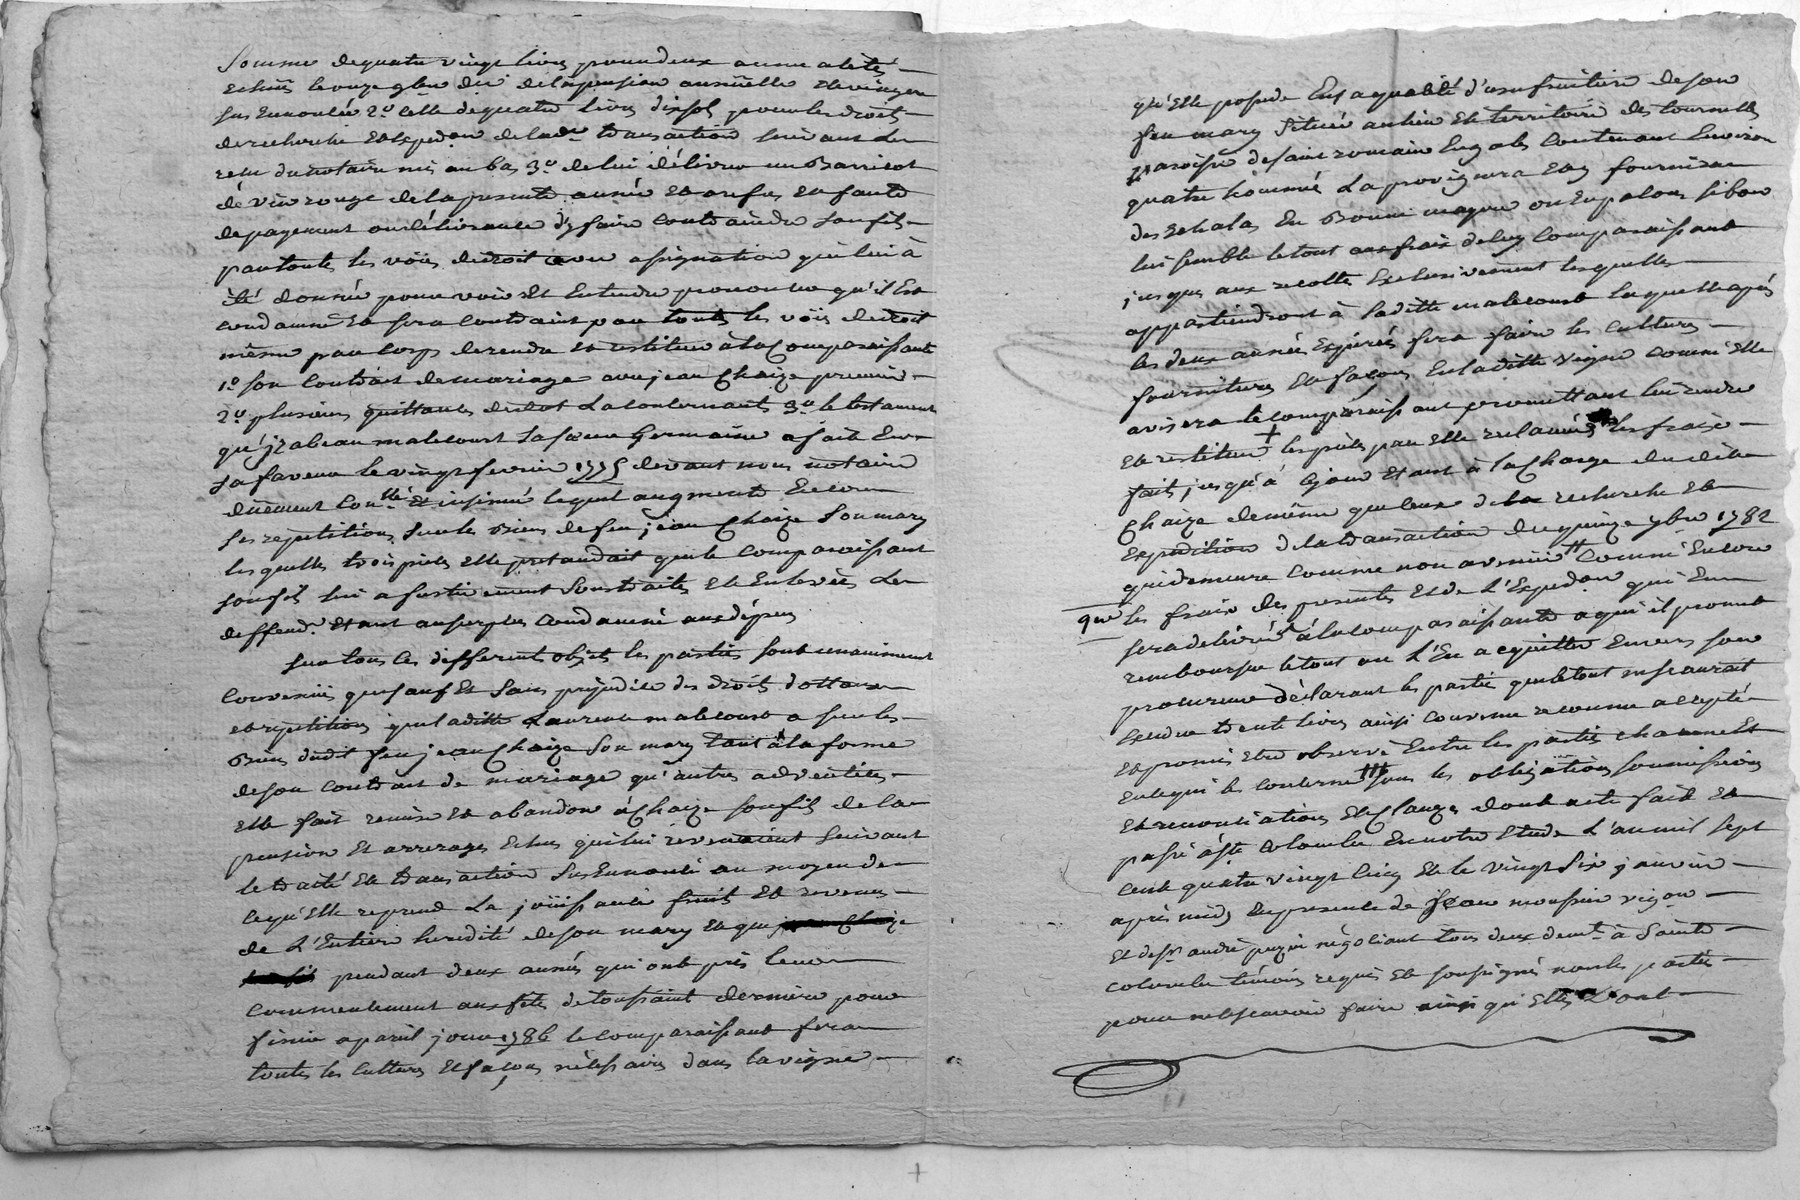 Somme de quatre vingt livres pour deux annualités
echües le onze 9bre dit de la pension annuelle
sus enoncée 2° celle de quatre livres dix sols pour les droits
de recherche et exped.on de lad.e transaction suivant le
recu du notaire mis au bas 3° de lui délivrer un Barricot
de vin rouge de la presente année et a refus et faute
de payement ou délivrance d'y faire contraindre son fils
par toutes les voies de droit avec assignation qui lui à
été donnée pour voir et entendre prononcer qu'il est
condamné et sera contraint par toutes les voies de droit
même par corps de rendre et restituer à la Comparaissante
1° son contrait de mariage avec jean Chaize premier
2° plusieurs quittances de dot la concernants 3° le testament
qu'jzabeau malecourt sa sœur Germaine a fait en
sa faveur le vingt fevrier 1775 devant nous notaire
duëment con.llé et insinué lequel augmente encore
ses repetitions sur les Biens de feu jean Chaize son mary
lesquelles trois pieces elle pretendait que le comparaissant
son fils lui a furtivement soustraites et enlevées le
deffend.r etant au surplus condamné aux dépens
sur tous les differents objets les parties sont unanimement
convenües que sauf et sans prejudice des droits d'ottaux
et repetitions que laditte Laurence malecourt a sur les
Biens dudit feu jean Chaize son mary tant à la forme
de son contrait de mariage qu'autres adventices
elle fait remise et abandon à Chaize son fils de la
pension et arrerages echus qui lui revenaient suivant
le traité et transaction sus enoncé au moyen de
ce qu'elle reprend la joüissance fruits et revenus
de l'entiere heredité de son mary et que
pendant deux années qui ont pris leur
commencement aux fêtes de toussaint derniere pour
finir a pareil jour 1786 le comparaissant fera
toutes les cultures et façons nécessaires dans la vigne
qu'elle possede en sa qualité d'usufruitiere de son
feu mary située au lieu et territoire des tournelles
paroisse de saint romain en gals contenant environ
quatre hommées la provignera et y fournira
des echalas en Bonne maguere ou en palons si bon
lui semble le tout aux frais de luy comparaissant
jusques aux recoltes exclusivement lesquelles
appartiendront à laditte malecourt laquelle après
les deux années expirées fera faire les cultures
fournitures et façons en laditte vigne comme elle
avisera le comparaissant promettant lui rendre
et restituer + les pièces par elle reclamées les frais
faits jusqu'à ce jour etant à la charge dudit
Chaize de même que ceux de la recherche et
expedition de la transaction du quinze 9bre 1782
qui demeure comme non avenüe # comme encore
que les frais des presentes et de l'exped.on qui en
sera delivrée à la comparaissante a qui il promet
rembourser le tout ou l'en acquitter envers son
procureur déclarant les parties que le tout ne scaurait
exceder trente livres ainsi convenu reconnu accepté
et promis etre observé entre les parties chacune et
en ce qui les concerne sous les obligations soumissions
et renonciations et clauzes dont acte fait et
passé à ste colombe en notre etude l'an mil sept
cent quatre vingt cinq et le vingt six janvier
après midy en presence de jean monsieur vigon
et de sr andré pezin négociant tous deux demt. à Sainte
colombe témoins requis et soussignés non les parties
pour ne sçavoir faire ainsi qu'elles l'ont